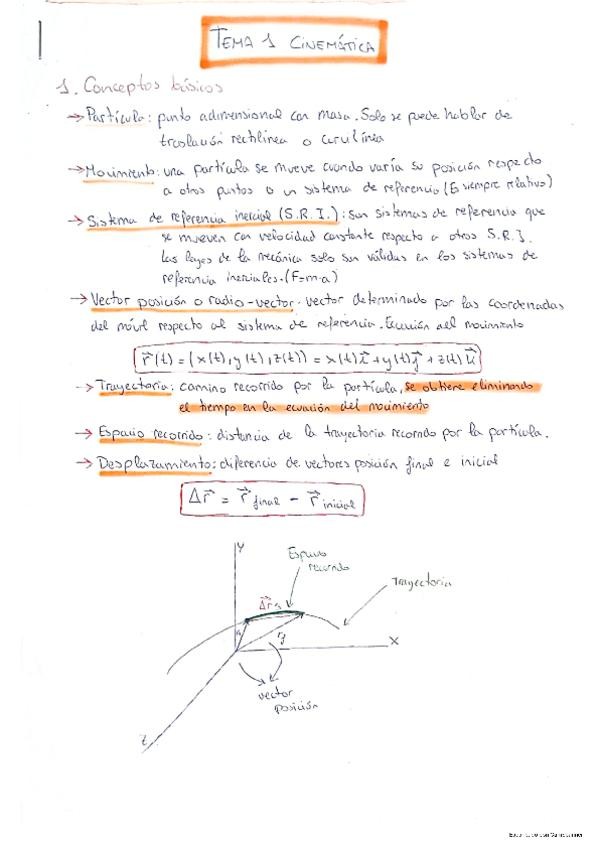 TEMA 1 CINEMÁTICA
1. Conceptos básicos
→ Partícula: punto adimensional con masa. Solo se puede hablar de
traslación rectilínea o curvilínea
→ Movimiento: una partícula se mueve cuando varía su posición respecto
a otros puntos o un sistema de referencia (Es siempre relativo)
→ Sistema de referencia inercial (S.R.I.): son sistemas de referencia que
se mueven con velocidad constante respecto a otros S.R.I.
Las leyes de la mecánica solo son válidas en los sistemas de
referencia inerciales. (F=m·a)
→ Vector posición o radio-vector: vector determinado por las coordenadas
del móvil respecto al sistema de referencia. Ecuación del movimiento
r⃗(t) = (x(t), y(t), z(t)) = x(t)i⃗ + y(t)j⃗ + z(t)k⃗
→ Trayectoria: camino recorrido por la partícula, se obtiene eliminando
el tiempo en la ecuación del movimiento
→ Espacio recorrido: distancia de la trayectoria recorrido por la partícula.
→ Desplazamiento: diferencia de vectores posición final e inicial
Δr⃗ = r⃗ final − r⃗ inicial
Y
Espacio
recorrido
Trayectoria
Δr⃗
X
vector
posición
Z